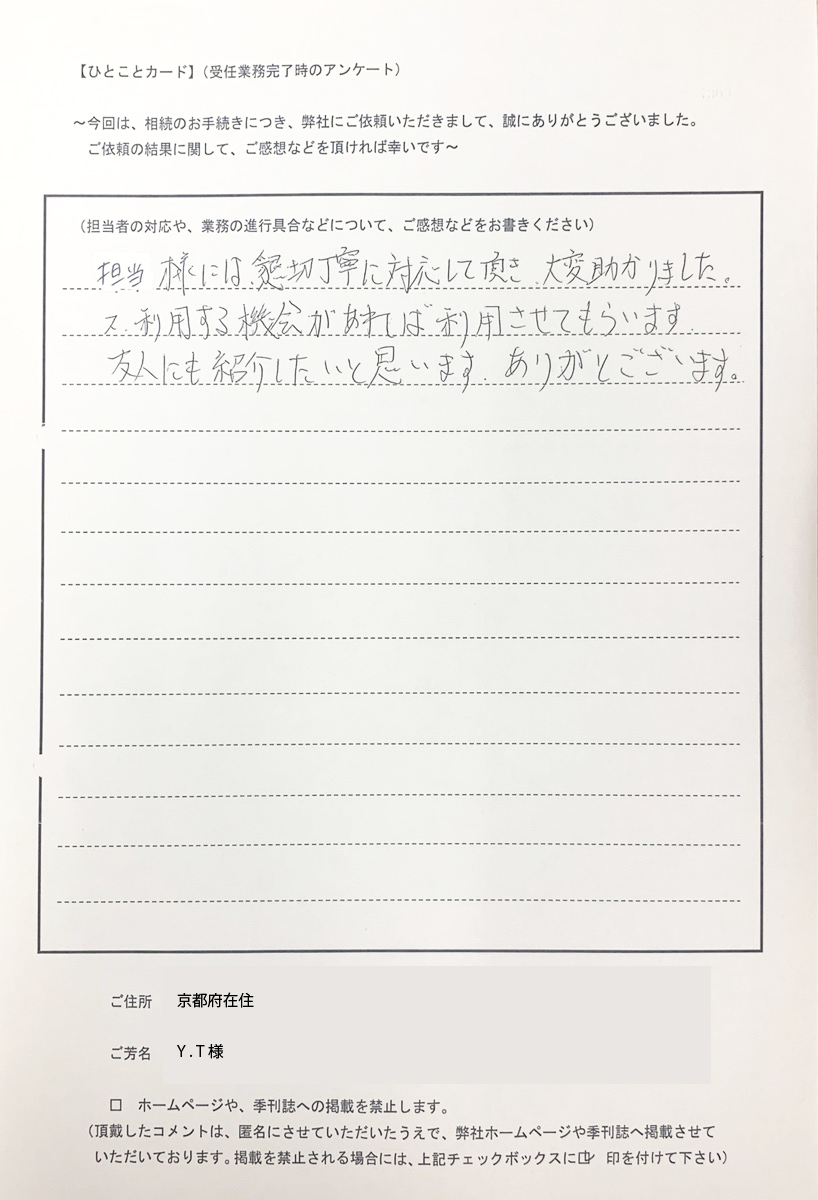 【ひとことカード】（受任業務完了時のアンケート）
～今回は、相続のお手続きにつき、弊社にご依頼いただきまして、誠にありがとうございました。
ご依頼の結果に関して、ご感想などを頂ければ幸いです～
（担当者の対応や、業務の進行具合などについて、ご感想などをお書きください）
担当 様には、懇切丁寧に対応して頂き、大変助かりました。
又、利用する機会があれば利用させてもらいます。
友人にも紹介したいと思います。ありがとございます。
ご住所 京都府在住
ご芳名 Y.T様
□ ホームページや、季刊誌への掲載を禁止します。
（頂戴したコメントは、匿名にさせていただいたうえで、弊社ホームページや季刊誌へ掲載させて
いただいております。掲載を禁止される場合には、上記チェックボックスに☑ 印を付けて下さい）